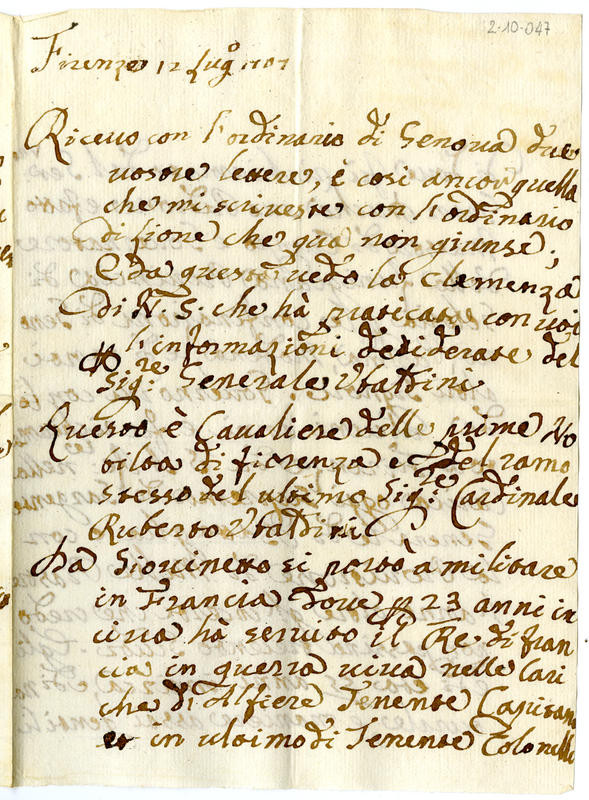 2-10-047
Firenze 12 Lug.o 1707
Riceuo con l'ordinario di Genoua due
uostre lettere, è cosi ancor quella
che mi scriueste con l'ordinario
di lione che quà non giunse;
E da questa uedo la clemenza
di N. S. che hà praticata con uoi
l'informazioni desiderate del
Sig.re Generale Vbaldini
Questo è Caualiere delle prime No
biltà di fiorenza e del ramo
stesso del ultimo Sig.re Cardinale
Ruberto Vbaldini
Da Giouinetto si portò a militare
in Francia doue p 23 anni in
circa hà seruito il Re di fran
cia in guerra uiua nelle Cari
che di Alfiere Tenente Capitano
et in ultimo di Tenente Colonello